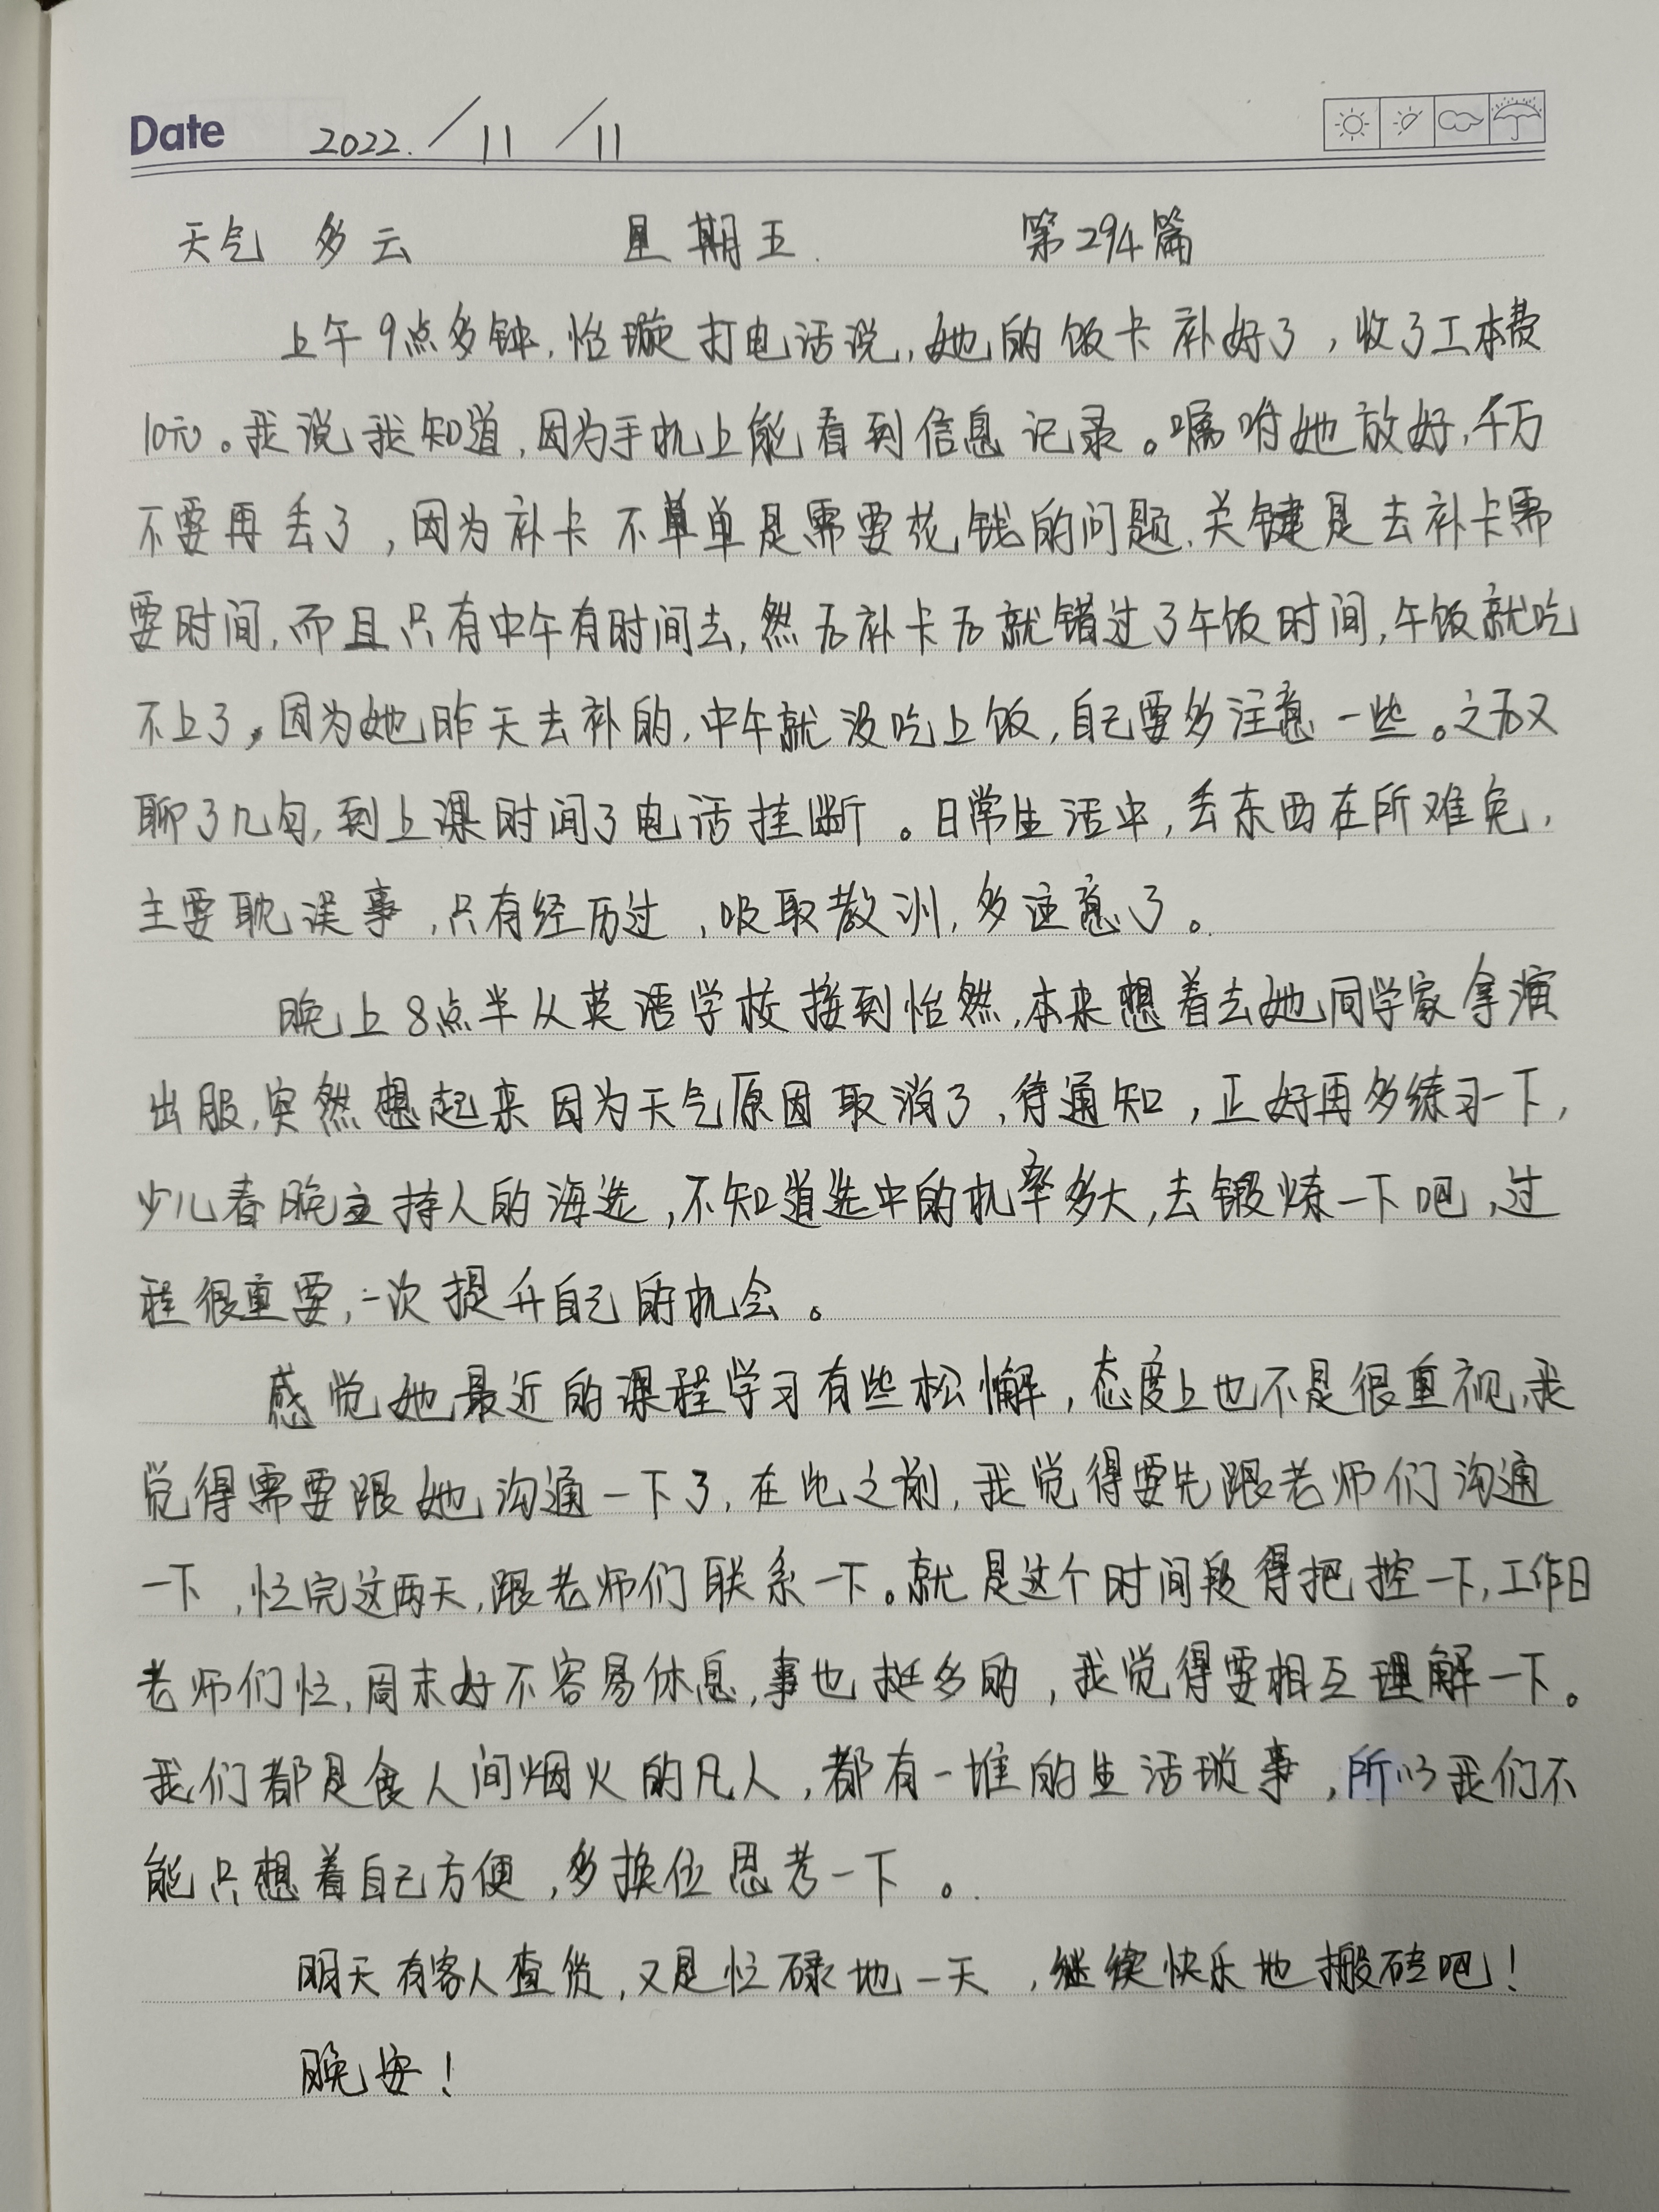 Date 2022. / 11 / 11
天气 多云 星期五. 第294篇
上午9点多钟,怡璇打电话说,她的饭卡补好了,收了工本费
10元。我说我知道,因为手机上能看到信息记录。嘱咐她放好,千万
不要再丢了,因为补卡不单单是需要花钱的问题,关键是去补卡需
要时间,而且只有中午有时间去,然后补卡后就错过了午饭时间,午饭就吃
不上了,因为她昨天去补的,中午就没吃上饭,自己要多注意一些。之后又
聊了几句,到上课时间了电话挂断。日常生活中,丢东西在所难免,
主要耽误事,只有经历过,吸取教训,多注意了。
晚上8点半从英语学校接到怡然,本来想着去她同学家拿演
出服,突然想起来因为天气原因取消了,待通知,正好再多练习一下,
少儿春晚主持人的海选,不知道选中的机率多大,去锻炼一下吧,过
程很重要,一次提升自己的机会。
感觉她最近的课程学习有些松懈,态度上也不是很重视,我
觉得需要跟她沟通一下了,在此之前,我觉得要先跟老师们沟通
一下,忙完这两天,跟老师们联系一下。就是这个时间段得把控一下,工作日
老师们忙,周末好不容易休息,事也挺多的,我觉得要相互理解一下。
我们都是食人间烟火的凡人,都有一堆的生活琐事,所以我们不
能只想着自己方便,多换位思考一下。
明天有客人查货,又是忙碌地一天,继续快乐地搬砖吧!
晚安!